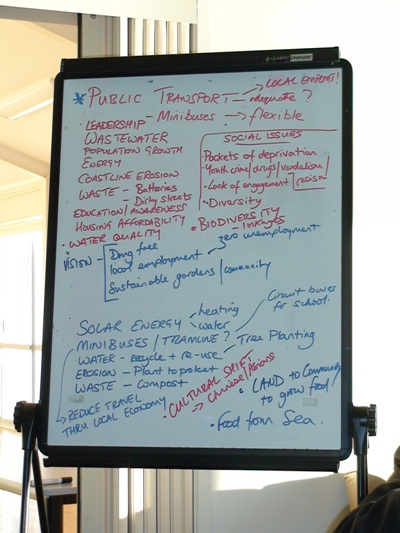 QUARTET
* PUBLIC TRANSPORT → LOCAL
— adequate ?
• LEADERSHIP — Minibuses → flexible
WASTEWATER
POPULATION GROWTH
ENERGY
COASTLINE EROSION
WASTE — Batteries
— Dirty streets
EDUCATION/AWARENESS
HOUSING AFFORDABILITY
• WATER QUALITY
SOCIAL ISSUES
Pockets of deprivation
• Youth crime/drugs/vandalism/
• Lack of engagement / racism
• Diversity
• BIODIVERSITY
— linkages
VISION — Drug free
local employment → zero unemployment
Sustainable gardens / community
SOLAR ENERGY < heating
water
MINIBUSES / TRAMLINE ? — Circuit buses
for school.
WATER — Recycle + re-use
EROSION — Plant to protect — Tree Planting
WASTE — Compost
→ REDUCE TRAVEL
THRU LOCAL ECONOMY
• CULTURAL SHIFT
→ Chinese/Asians
• LAND to Community
to grow food!
• Food from Sea.